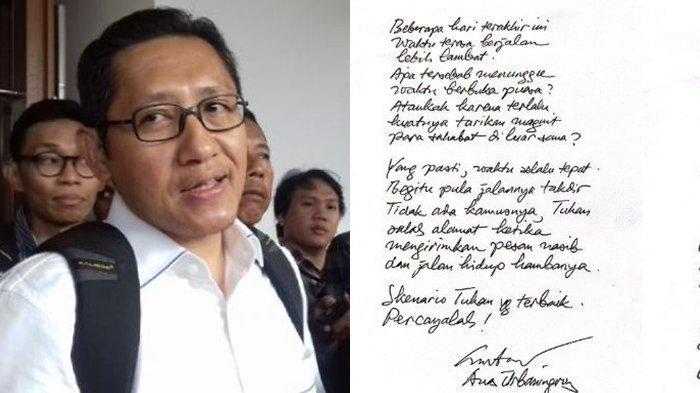 Beberapa hari terakhir ini
Waktu terasa berjalan
lebih lambat.
Apa tersebab menunggu
waktu berbuka puasa?
Ataukah karena terlalu
kuatnya tarikan magnit
para sahabat di luar sana?
Yang pasti, waktu selalu tepat.
Begitu pula jalannya takdir
Tidak ada kamusnya, Tuhan
salah alamat ketika
mengirimkan pesan nasib
dan jalan hidup hambanya.
Skenario Tuhan yg terbaik.
Percayalah!
Anas Urbaningrum